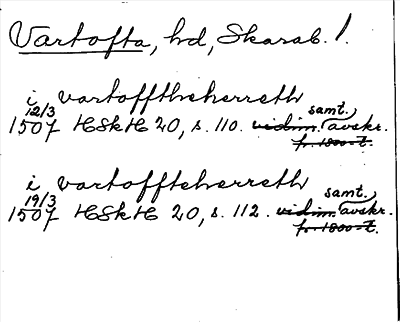 Vartofta, hd, Skarab. l.
i vartofftheherreth
12/3 samt.
1507 HSkH 20, s. 110. vidim. avskr.
fr. 1800-t.
i vartoffteherreth
19/3 samt.
1507 HSkH 20, s. 112. vidim. avskr.
fr. 1800-t.